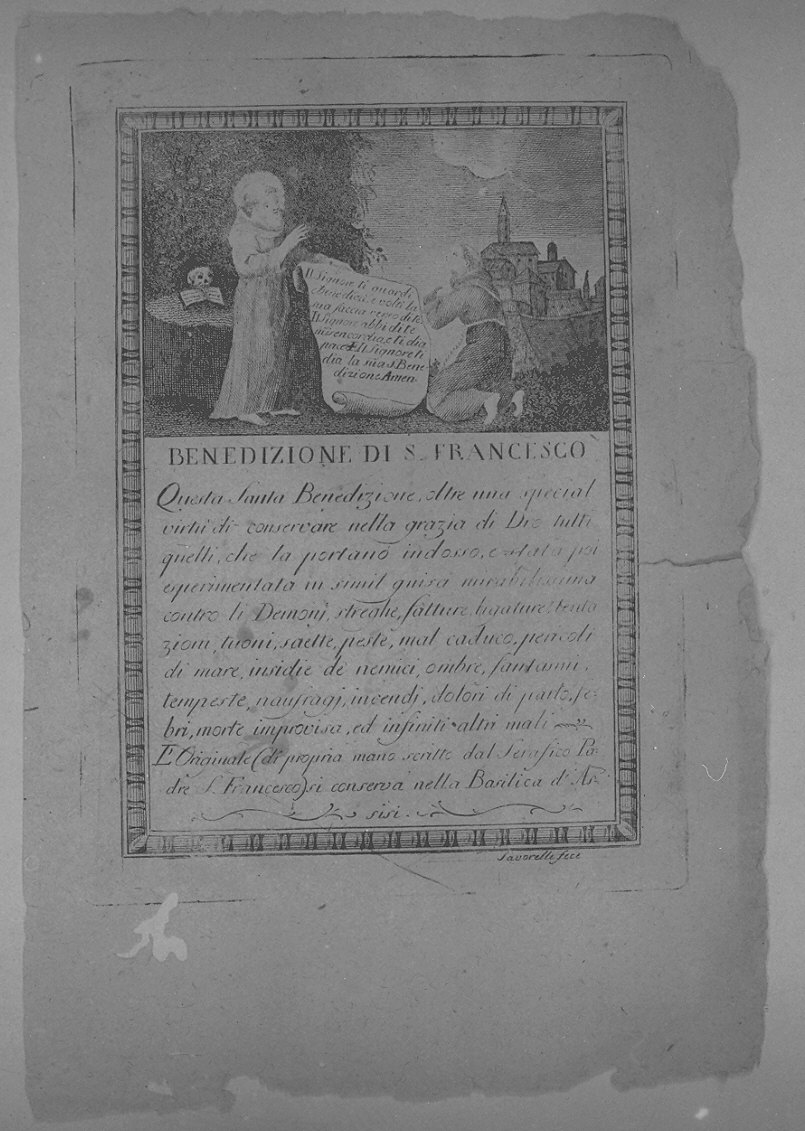 Il Signore ti guardi,
e benedica, e volti la
sua faccia verso di te
Il Signore abbi di te
misericordia, e ti dia
pace Il Signore ti
dia la sua S. Bene
dizione Amen.
BENEDIZIONE DI S. FRANCESCO
Questa Santa Benedizione, oltre una special
virtù di conservare nella grazia di Dio tutti
quelli, che la portano indosso, è stata poi
esperimentata in simil guisa mirabilissima
contro li Demonj, streghe, fatture, ligature, tenta
zioni, tuoni, saette, peste, mal caduco, pericoli
di mare, insidie de nemici, ombre, fantasmi,
tempeste, naufragj, incendj, dolori di parto, fe-
bri, morte improvisa, ed infiniti altri mali
L'Originale (di propria mano scritto dal Serafico Pa-
dre S. Francesco) si conserva nella Basilica d'As-
sisi.
Savorelli fece